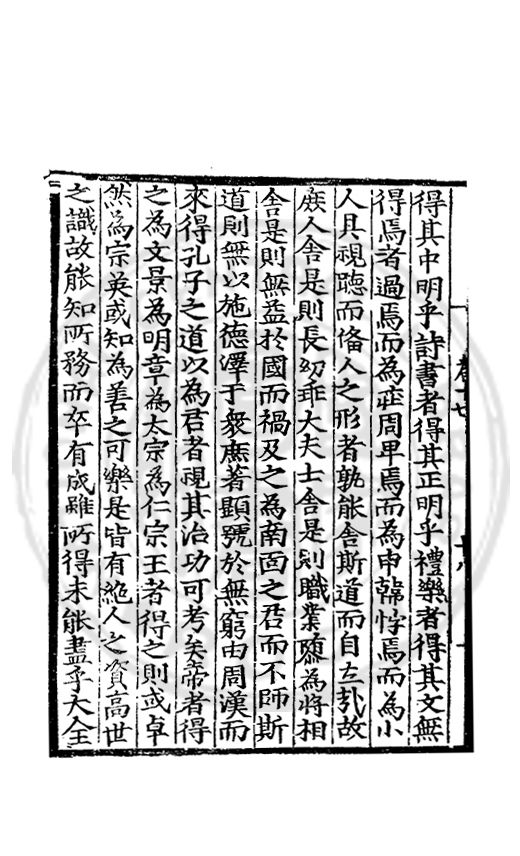 卷十七
十八
得其中明乎詩書者得其正明乎禮樂者得其文無
得焉者過焉而為莊周卑焉而為申韓悖焉而為小
人具視聽而俻人之形者孰能舍斯道而自立㢤故
庻人舍是則長幼乖大夫士舍是則職業隳為將相
舍是則無益扵國而禍及之為南面之君而不師斯
道則無以施德澤于衆庶著顯號於無窮由周漢而
來得孔子之道以為君者視其治功可考矣帝者得
之為文景為明章為太宗為仁宗王者得之則或卓
然為宗英或知為善之可樂是皆有絶人之資高世
之識故能知所務而卒有成雖所得未能盡乎大全